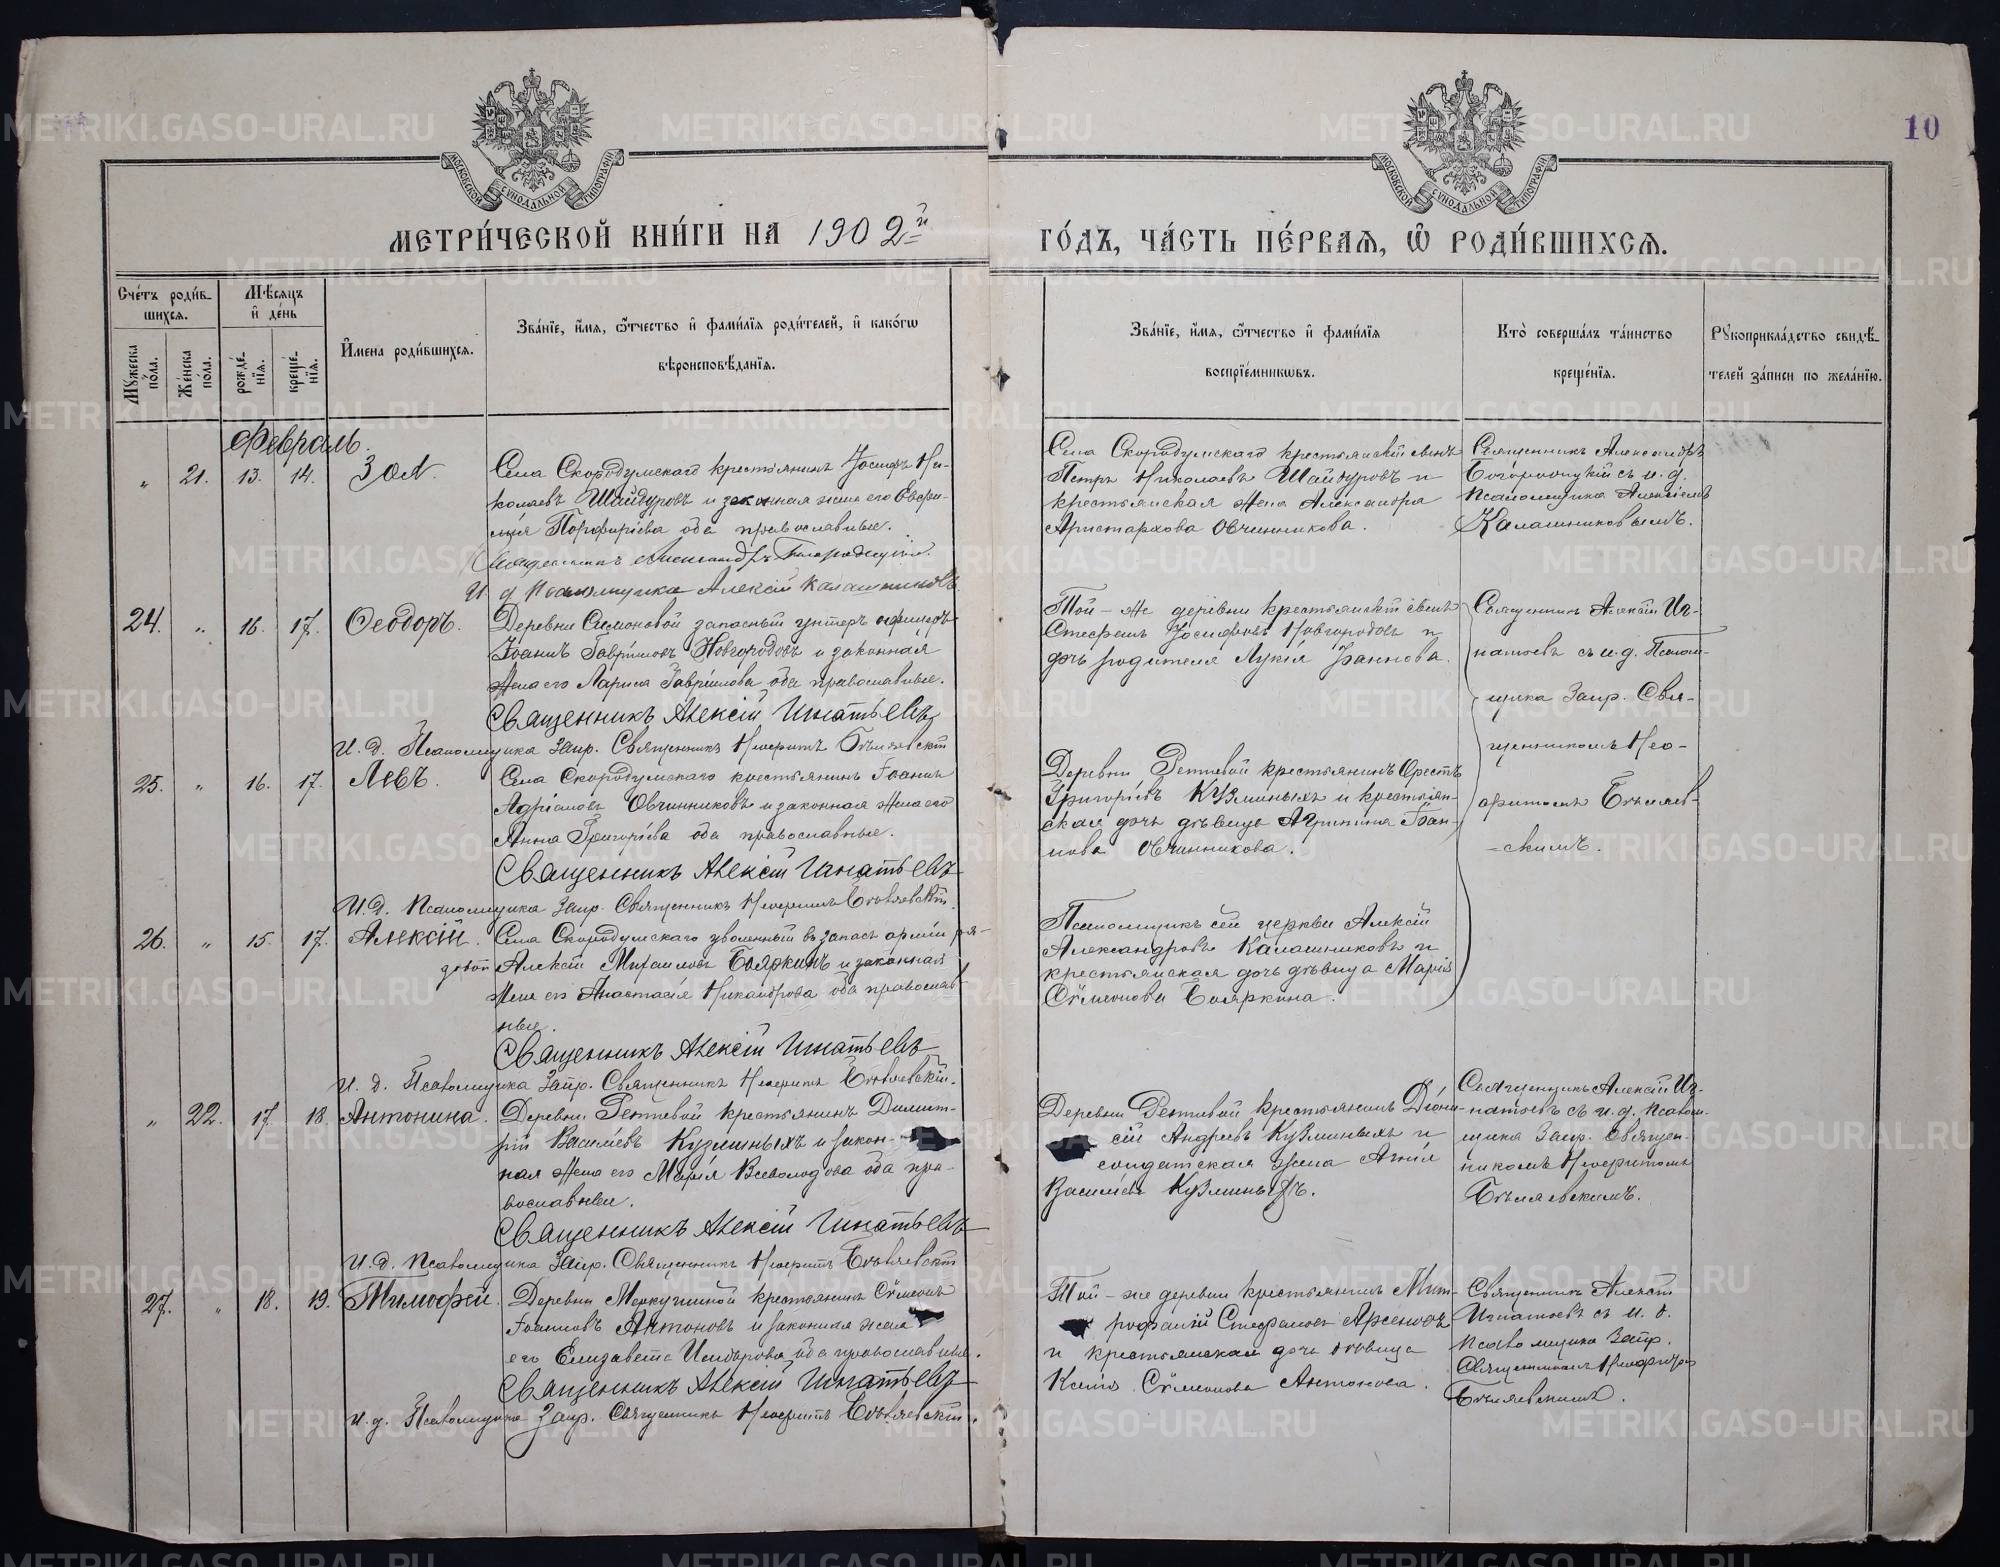 10
МОСКОВСКОЙ СѴНОДАЛЬНОЙ ТИПОГРАФІИ
МОСКОВСКОЙ СѴНОДАЛЬНОЙ ТИПОГРАФІИ
МЕТРИ́ЧЕСКОЙ КНИ́ГИ НА 1902й
ГО́ДЪ, ЧА́СТЬ ПЕ́РВАЯ, Ѡ҆ РОДИ́ВШИХСЯ.
Сче́тъ роди́в-
шихся.
Мѣ́сяцъ
и҆ де́нь
Мꙋ́жеска по́ла.
Же́нска по́ла.
рожде́-
нїя.
креще́-
нїя.
И҆мена роди́вшихся.
Зва́нїе, и҆́мя, ѻ҆́тчество и҆ фами́лїя роди́телей, и҆ како́гѡ
вѣроисповѣ́данїя.
Зва́нїе, и҆́мя, ѻ҆́тчество и҆ фами́лїя
воспрїе́мниковъ.
Кто̀ соверша́лъ та́инство
креще́нїя.
Рꙋкоприкла́дство свидѣ́-
телей за́писи по жела́нїю.
Февраль.
„ 21. 13. 14. Зоя.
Села Скородумскаго крестьянинъ Іосифъ Ни-
колаевъ Шайдуровъ и законная жена его Евфи-
мія Порфиріева оба православные.
Священникъ Александръ Богородицкій.
И. д. Псаломщика Алексій Калашниковъ.
Села Скородумскаго крестьянскій сынъ
Петръ Николаевъ Шайдуровъ и
крестьянская жена Александра
Аристархова Овчинникова.
Священникъ Александръ
Богородицкій съ и. д.
псаломщика Алексіемъ
Калашниковымъ.
24. „ 16. 17. Ѳеодоръ.
Деревни Симоновой запасный унтеръ офицеръ
Іоаннъ Гавріиловъ Новгородовъ и законная
жена его Лариса Гавріилова оба православные.
Священникъ Алексій Игнатьевъ
И. д. Псаломщика Запр. Священникъ Неофитъ Бѣляевскій
Той-же деревни крестьянскій сынъ
Стефанъ Іосифовъ Новгородовъ и
дочь родителя Лукія Іоаннова.
Священникъ Алексій Иг-
натьевъ съ и. д. Псалом-
щика Запр. Свя-
щенникомъ Нео-
фитомъ Бѣляев-
скимъ.
25. „ 16. 17. Левъ.
Села Скородумскаго крестьянинъ Іоаннъ
Адріановъ Овчинниковъ и законная жена его
Анна Григоріева оба православные.
Священникъ Алексій Игнатьевъ
И. д. Псаломщика Запр. Священникъ Неофитъ Бѣляевскій.
Деревни Ретневой крестьянинъ Орестъ
Григоріевъ Кузминыхъ и крестьян-
ская дочь дѣвица Агрипина Іоан-
нова Овчинникова.
26. „ 15. 17. Алексій.
Села Скородумскаго уволенный въ запасъ арміи ря-
довой Алексій Михаиловъ Бояркинъ и законная
жена его Анастасія Никандрова оба православ-
ные.
Священникъ Алексій Игнатьевъ
И. д. Псаломщика Запр. Священникъ Неофитъ Бѣляевскій.
Псаломщикъ сей церкви Алексій
Александровъ Калашниковъ и
крестьянская дочь дѣвица Марія
Сѵмеонова Бояркина.
„ 22. 17. 18. Антонина.
Деревни Ретневой крестьянинъ Димит-
рій Василіевъ Кузминыхъ и закон-
ная жена его Марія Всеволодова оба пра-
вославные.
Священникъ Алексій Игнатьевъ
И. д. Псаломщика Запр. Священникъ Неофитъ Бѣляевскій
Деревни Ретневой крестьянинъ Діони-
сій Андреевъ Кузминыхъ и
солдатская жена Агнія
Василіева Кузминыхъ.
Священникъ Алексій Иг-
натьевъ съ и. д. Псалом-
щика Запр. Священ-
никомъ Неофитомъ
Бѣляевскимъ.
27. „ 18. 19. Тимофей.
Деревни Меркушиной крестьянинъ Сѵмеонъ
Іоанновъ Антоновъ и законная жена
его Елизавета Исидорова оба православные.
Священникъ Алексій Игнатьевъ
И. д. Псаломщика Запр. Священникъ Неофитъ Бѣляевскій.
Той-же деревни крестьянинъ Мит-
рофаній Стефановъ Арсеновъ
и крестьянская дочь дѣвица
Ксенія Сѵмеонова Антонова.
Священникъ Алексій
Игнатьевъ съ и. д.
псаломщика Запр.
Священникомъ Неофитомъ
Бѣляевскимъ.
METRIKI.GASO-URAL.RU